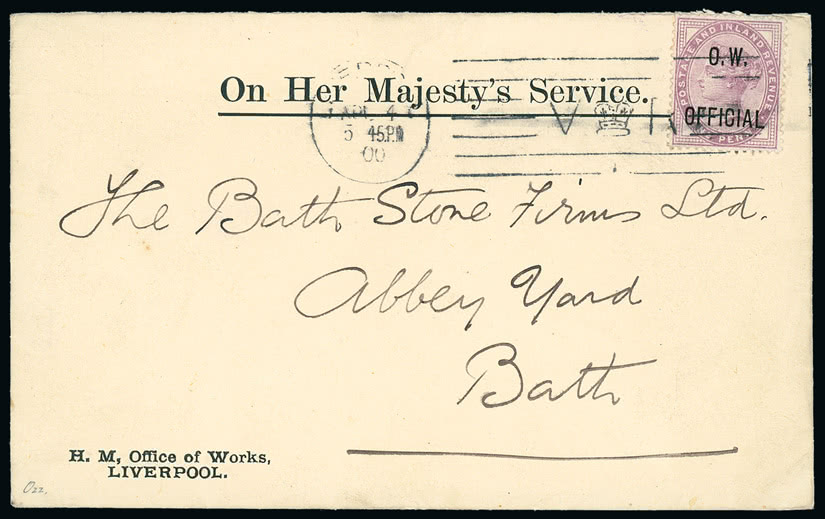 On Her Majesty's Service.
AP 4
5 45.PM
00
V R
POSTAGE AND INLAND REVENUE
O.W.
OFFICIAL
The Bath Stone Firms Ltd.
Abbey Yard
Bath
H. M, Office of Works,
LIVERPOOL.